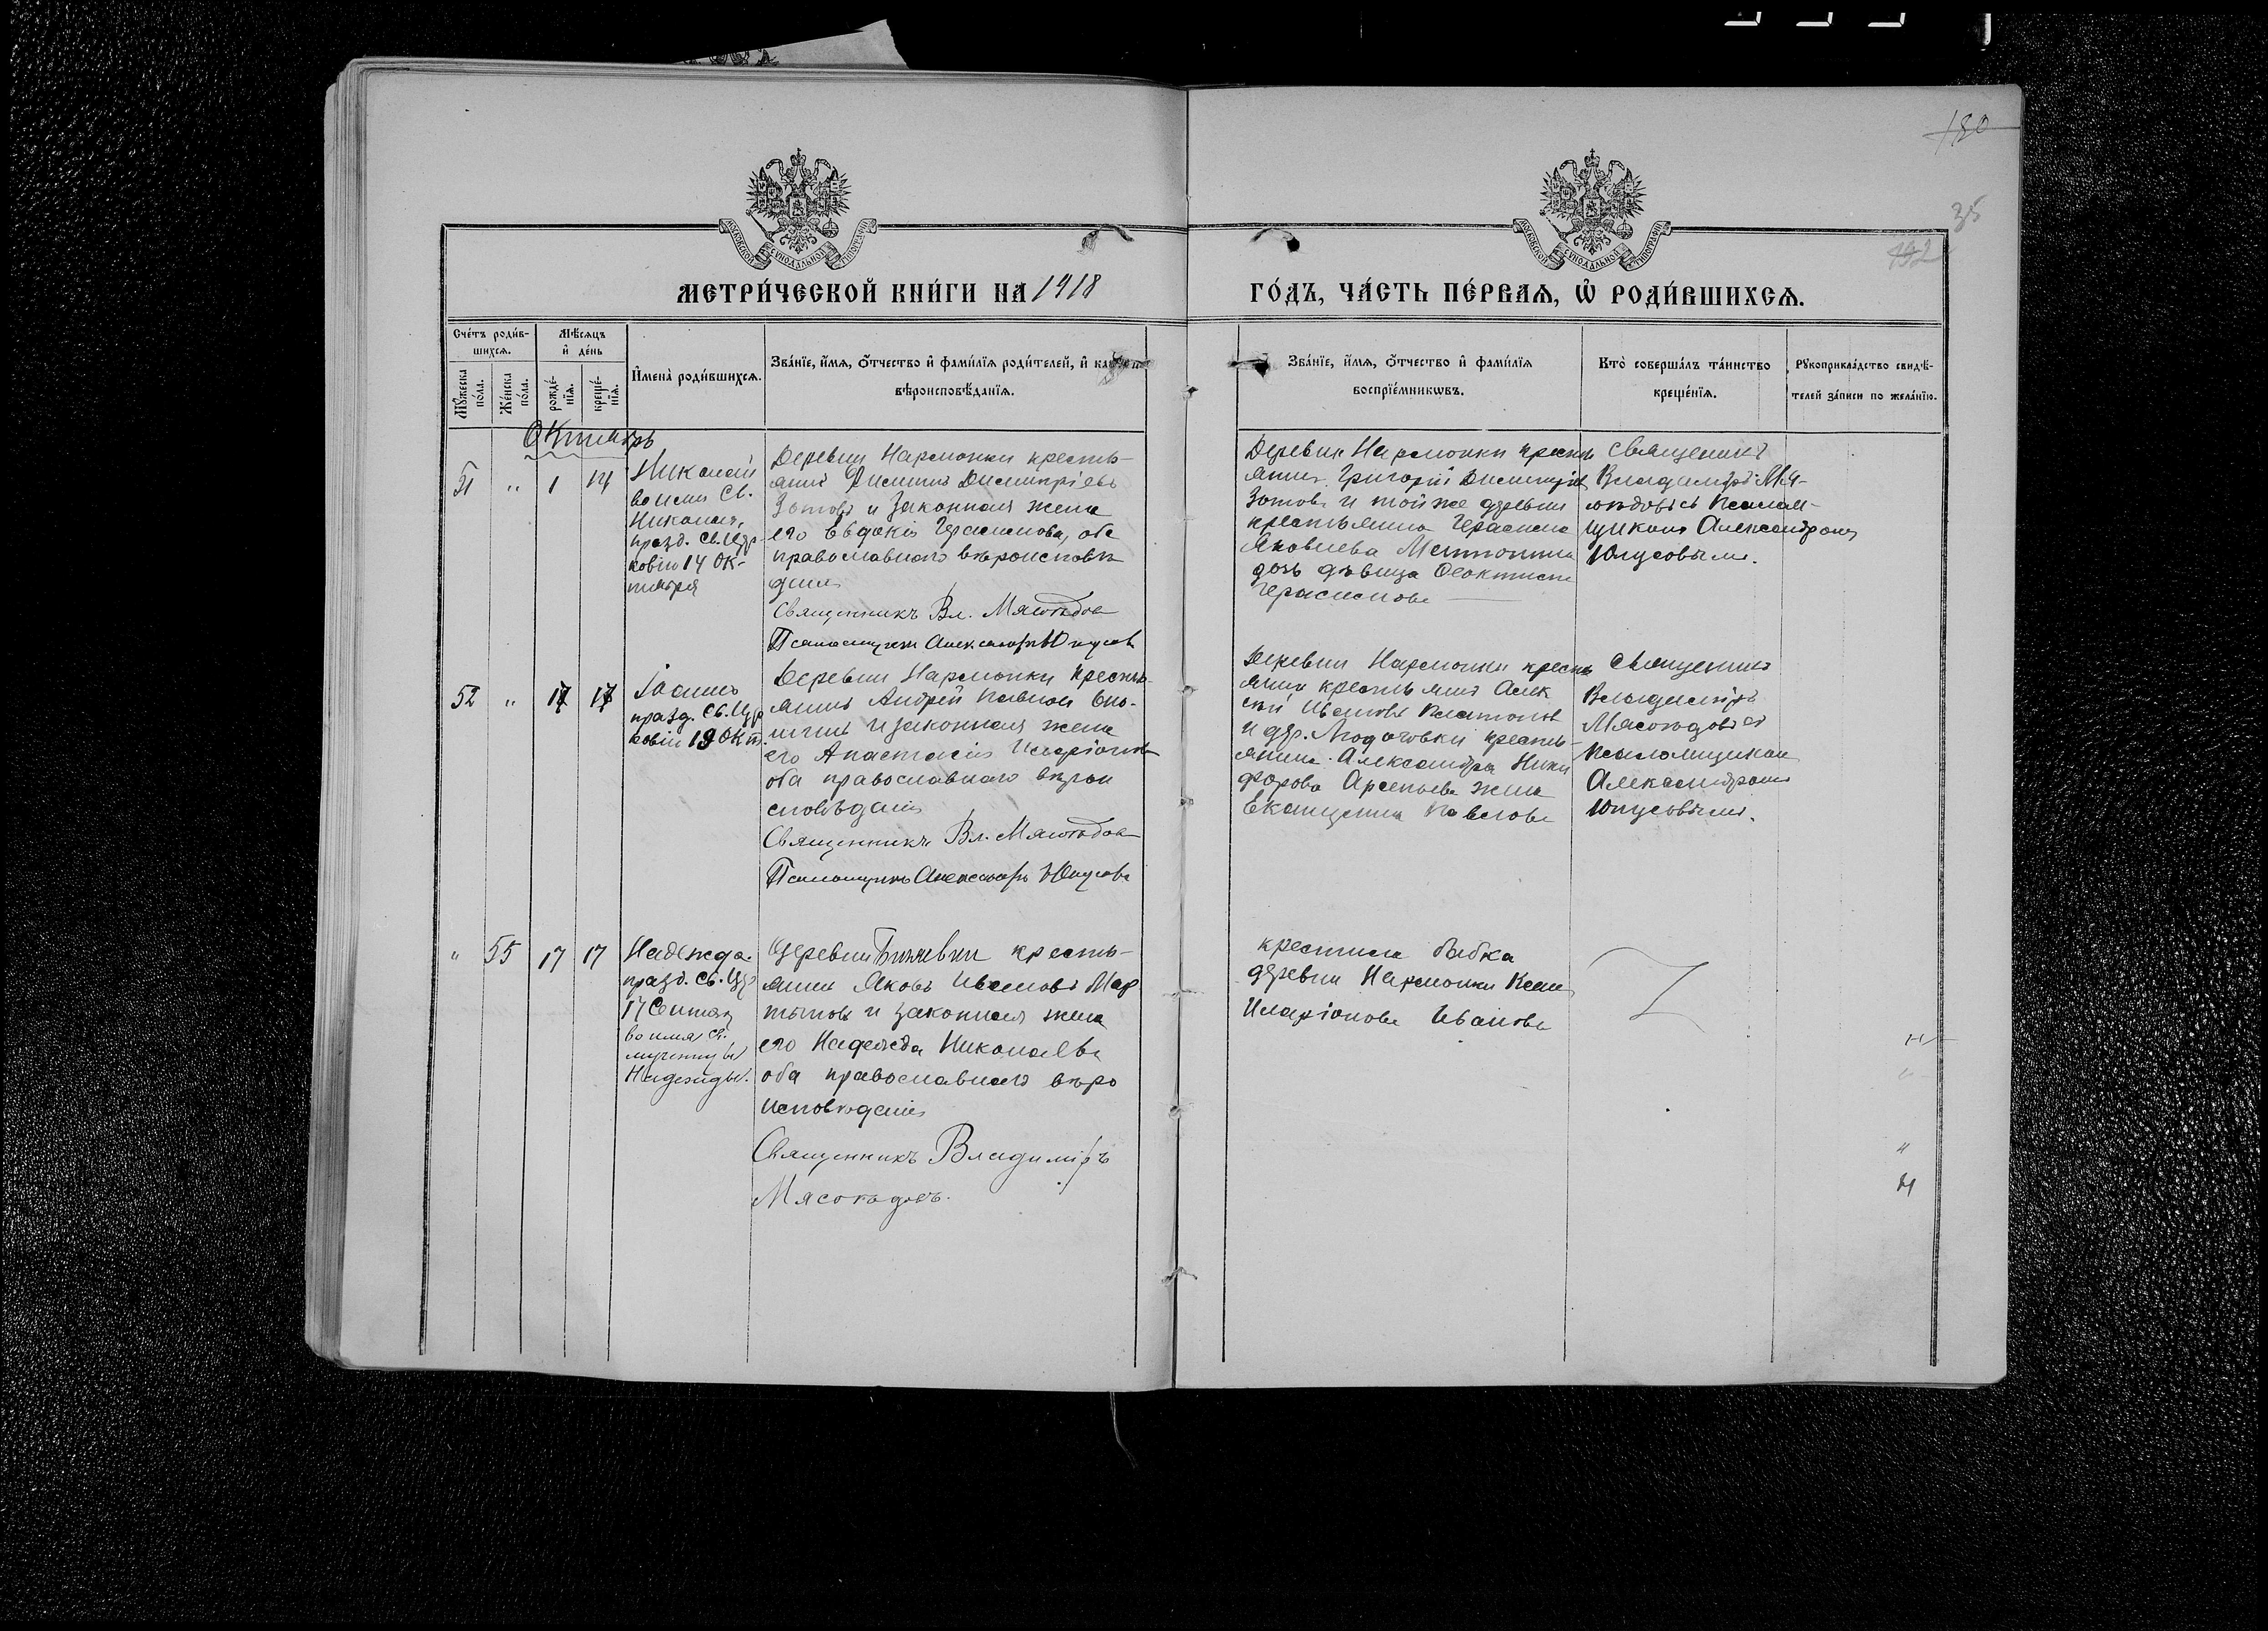 180
35
192
МОСКОВСКОЙ СѴНОДАЛЬНОЙ ТИПОГРАФІИ
МОСКОВСКОЙ СѴНОДАЛЬНОЙ ТИПОГРАФІИ
МЕТРИ́ЧЕСКОЙ КНИ́ГИ НА 1918
ГО́ДЪ, ЧА́СТЬ ПЕ́РВАѦ, Ѽ РОДИ́ВШИХСѦ.
Сче́тъ роди́в-
шихсѧ.
Мꙋжеска по́ла.
Же́нска по́ла.
Мѣ́сѧцъ
и҆ де́нь
рожде́-
нїѧ.
креще́-
нїѧ.
И҆мена̀ роди́вшихсѧ.
Зва́нїе, и҆́мѧ, ѻ҆́тчество и҆ фами́лїѧ роди́телей, и҆ как
вѣроисповѣ́данїѧ.
Зва́нїе, и҆́мѧ, ѻ҆́тчество и҆ фами́лїѧ
воспрїе́мникѡвъ.
Кто̀ соверша́лъ та́инство
креще́нїѧ.
Рꙋкоприкла́дство свидѣ́-
телей за́писи по жела́нїю.
Октябрь
51 " 1 14
Николай
во имя Св.
Николая,
празд. Св. Цер
ковію 14 Ок-
тября
Деревни Нармонки кресть-
янинъ Димитріевъ
Зотовъ и законная жена
его Евдокія Герасимова, оба
православнаго вѣроисповѣ
данія
Священникъ Вл. Мясоѣдов
Псаломщикъ Александръ Юнусов
Деревни Нармонки кресть
янинъ Григорій Димитріев
Зотовъ и той же деревни
крестьянина Герасима
Яковлева
дочь дѣвица Ѳеоктиста
Герасимова
Священникъ
Владиміръ Мя-
соѣдовъ съ псалом-
щикомъ Александромъ
Юнусовымъ.
52 " 17 17
Іоаннъ
празд. Св. Цер
ковію 19 Окт.
Деревни Нармонки кресть-
янинъ Андрей Павлов
и законная жена
его Анастасія Иларіонова
оба православнаго вѣрои
сповѣданія
Священникъ Вл. Мясоѣдов
Псаломщикъ Александръ Юнусовъ
Деревни Нармонки кресть
янин крестьянинъ Алек
сѣй Ивановъ Платонов
и дер. кресть-
янина Александра Ники
форова Арсеньева жена
Екатерина Павлова
Священникъ
Владиміръ
Мясоѣдовъ съ
псаломщикомъ
Александромъ
Юнусовымъ.
" 55 17 17
Надежда.
празд. Св. Цер
17 Сентяб
во имя Св.
мученицы
Надежды.
Деревни кресть-
янинъ Яковъ Ивановъ Мар
тыновъ и законная жена
его Надежда Николаева
оба православнаго вѣро
исповѣданія
Священникъ Владиміръ
Мясоѣдовъ.
крестила бабка
деревни Нармонки Ксенія
Иларіонова Иванова